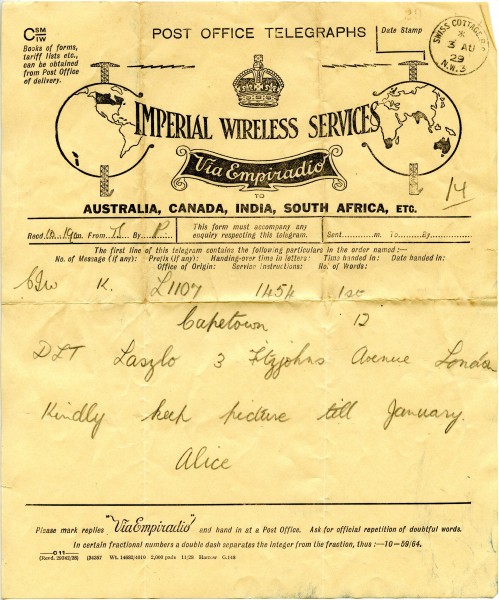 CSM
C/IW
POST OFFICE TELEGRAPHS
Date Stamp
SWISS COTTAGE
*
3 AU
29
N.W.3
Books of forms,
tariff lists etc.,
can be obtained
from Post Office
of delivery.
IMPERIAL WIRELESS SERVICES
Via Empiradio
TO
AUSTRALIA, CANADA, INDIA, SOUTH AFRICA, ETC.
Recd. From By
This form must accompany any
enquiry respecting this telegram.
Sent m. To By
The first line of this telegram contains the following particulars in the order named :—
No. of Message (if any): Prefix (if any): Handing-over time in letters: Time handed in: Date handed in:
Office of Origin: Service Instructions: No. of Words:
K. L1107 1454 1st
Capetown 12
DLT Laszlo 3 Fitzjohns Avenue London
Kindly keep picture till January.
Alice
Please mark replies "Via Empiradio" and hand in at a Post Office. Ask for official repetition of doubtful words.
In certain fractional numbers a double dash separates the integer from the fraction, thus :—10=59/64.
C 11